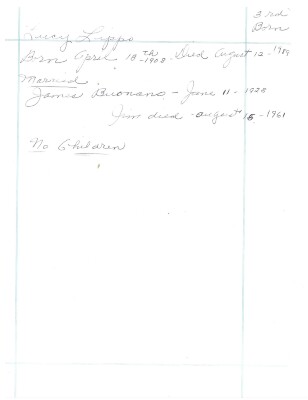 3rd
Born
Lucy Lippo
Born April 18th 1908. Died August 12-1989
Married
James Buonano - June 11-1928
Jim died - August 15-1961
No Children